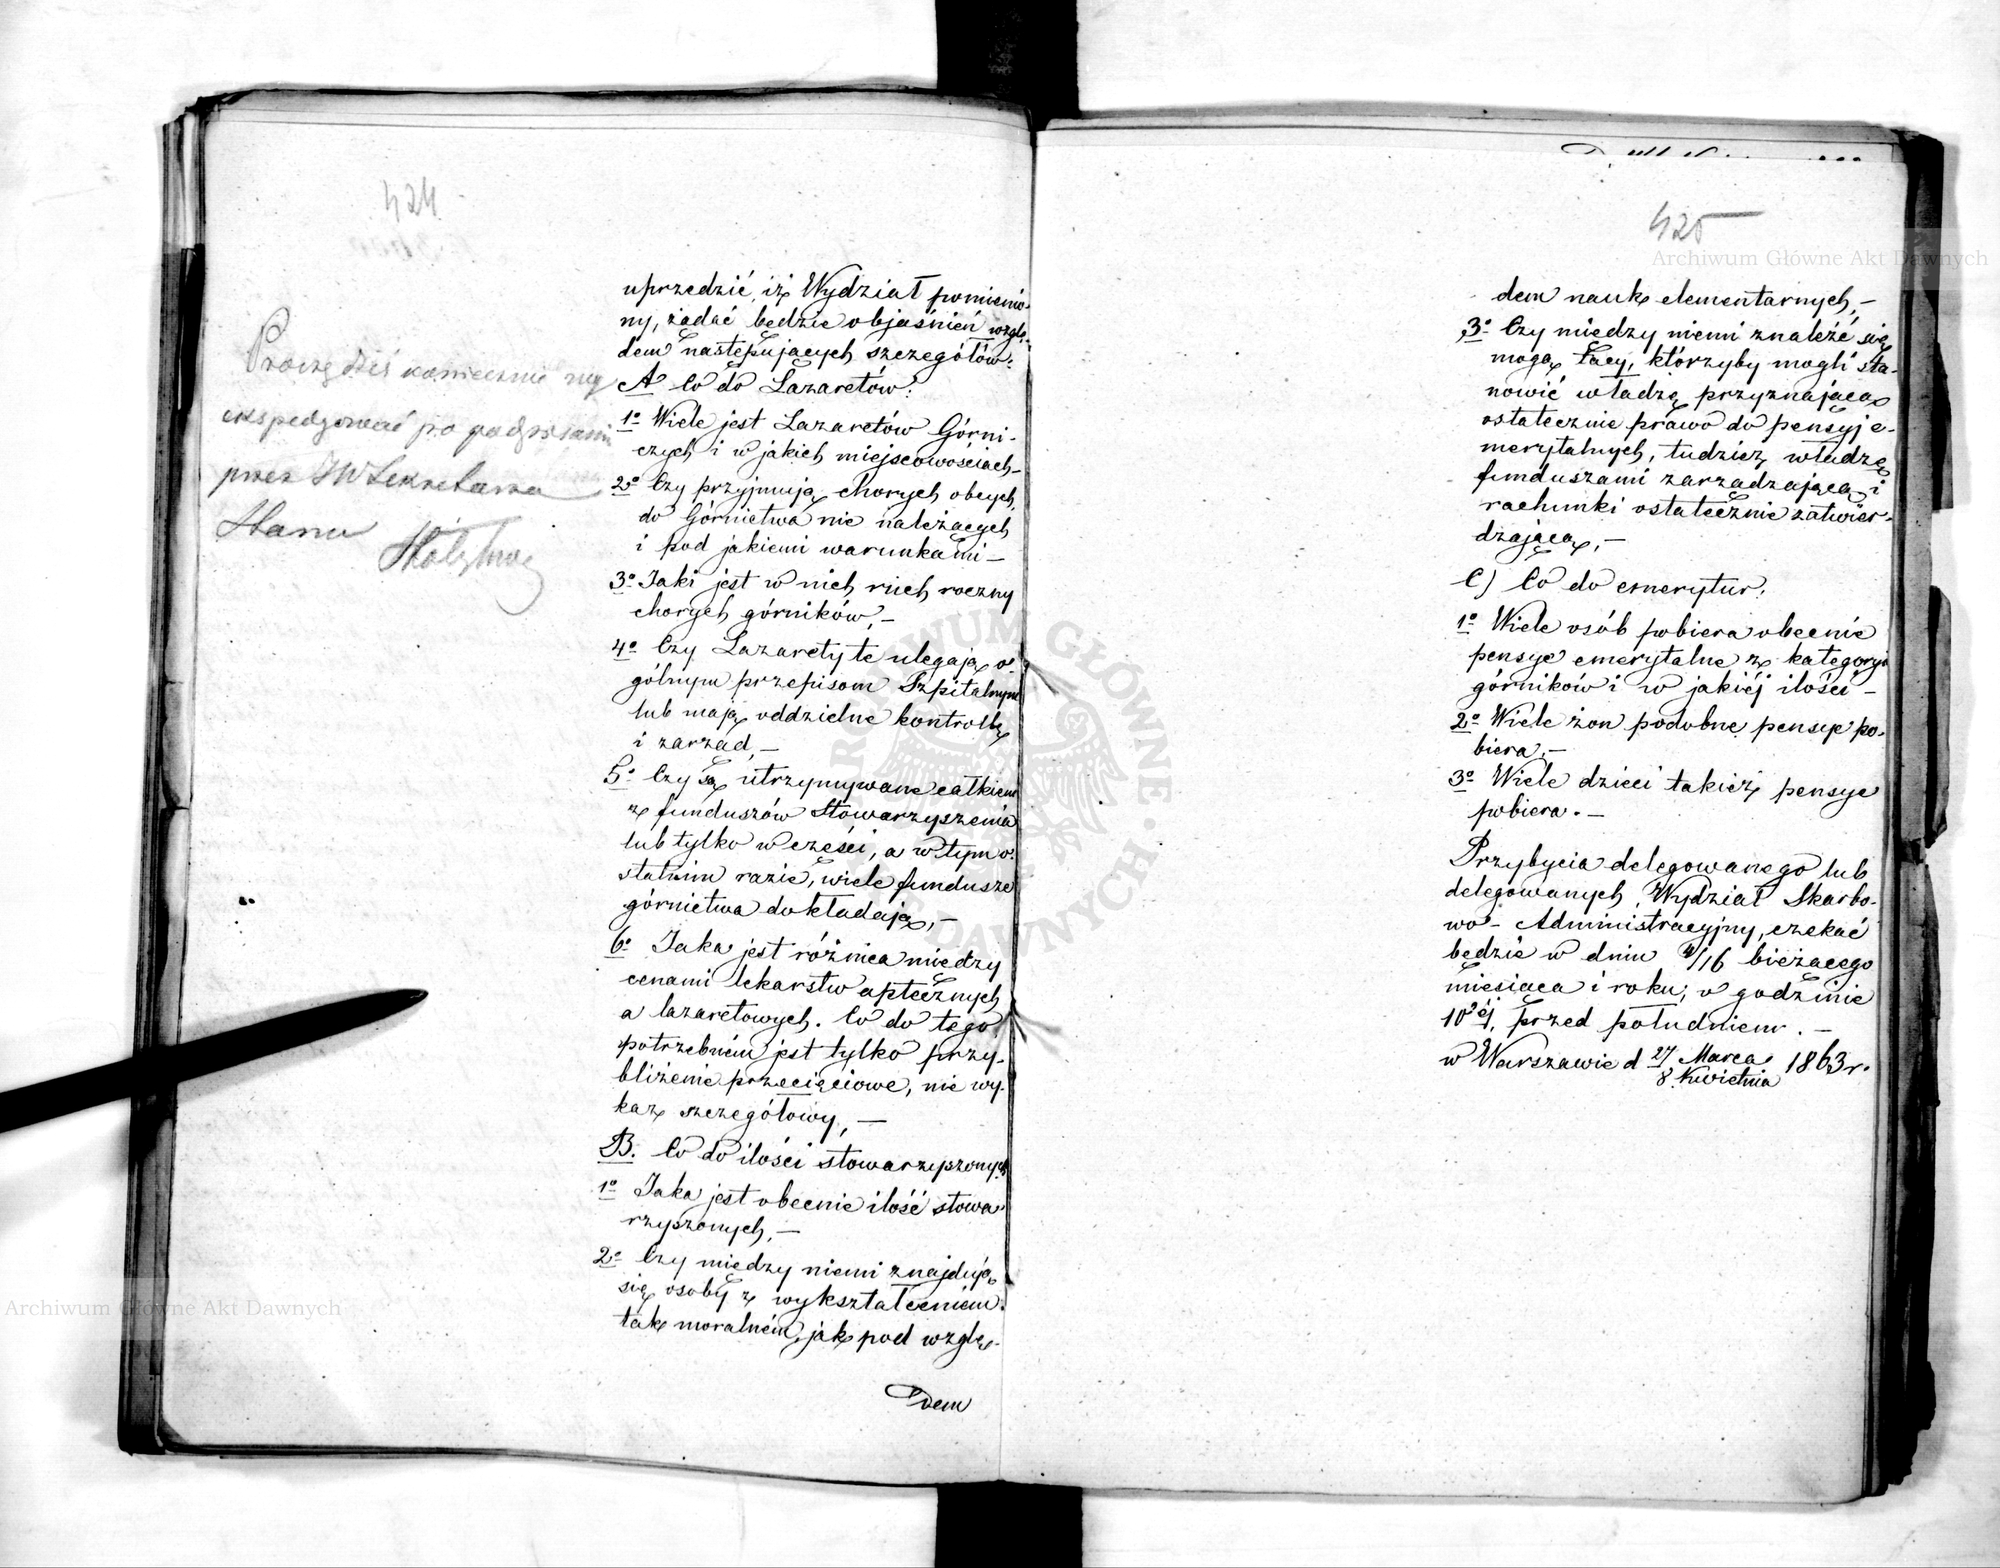 424
Proszę dziś koniecznie wy
ekspedyować po podpisaniu
przez JW Sekretarza
Stanu
uprzedzić, iż Wydział pomienio-
ny, żądać będzie objaśnień wzglę-
dem następujących szczegółów:
A Co do Lazaretów:
1º Wiele jest Lazaretów Górni-
czych i w jakich miejscowościach –
2º Czy przyjmują chorych obcych,
do Górnictwa nie należących
i pod jakiemi warunkami –
3º Jaki jest w nich ruch roczny
chorych górników, –
4º Czy Lazarety te ulegają o-
gólnym przepisom Szpitalnym
lub mają oddzielne kontrolle
i zarząd, –
5º Czy są utrzymywane całkiem
z funduszów Stowarzyszenia
lub tylko w części, a w tym o-
statnim razie, wiele fundusze
górnictwa dokładają, –
6º Jaka jest różnica między
cenami lekarstw aptecznych
a lazaretowych. Co do tego
potrzebném jest tylko przy-
bliżenie przecięciowe, nie wy-
kaz szczegółowy, –
B. Co do ilości stowarzyszonych
1º Jaka jest obecnie ilość stowa-
rzyszonych, –
2º Czy między niemi znajdują
się osoby z wykształceniem
tak moralném, jak pod wzglę-
dem
425
dem nauk elementarnych, –
3º Czy między niemi znaleźć się
mogą tacy, którzyby mogli sta-
nowić władzę przyznającą
ostatecznie prawo do pensyj e-
merytalnych, tudzież władzę
funduszami zarządzającą i
rachunki ostatecznie zatwier-
dzającą, –
C) Co do emerytur.
1º Wiele osób pobiera obecnie
pensye emerytalne z kategoryi
górników i w jakiéj ilości –
2º Wiele żon podobne pensye po-
biera, –
3º Wiele dzieci takież pensye
pobiera. –
Przybycia delegowanego lub
delegowanych, Wydział Skarbo-
wo-Administracyjny, czekać
będzie w dniu 4/16 bieżącego
miesiąca i roku, o godzinie
10éj, przed południem. –
w Warszawie d 27 Marca 1863 r.
8 Kwietnia
Archiwum Główne Akt Dawnych
Archiwum Główne Akt Dawnych
ARCHIWUM GŁÓWNE AKT DAWNYCH